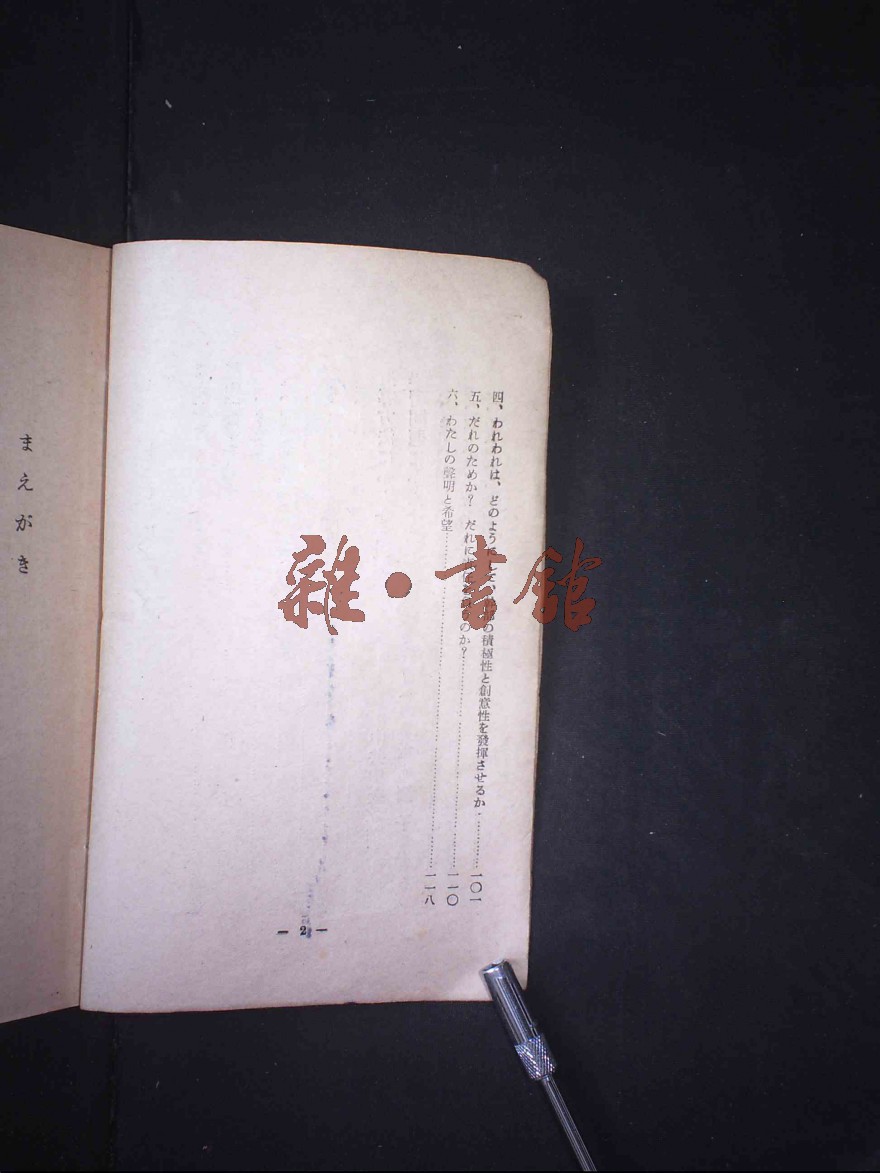 四、われわれは、どのようにして、の積極性と創意性を發揮させるか…………一〇一
五、だれのためか? だれにのか?…………一一〇
六、わたしの聲明と希望…………一一八
— 2 —
まえがき
雜·書館